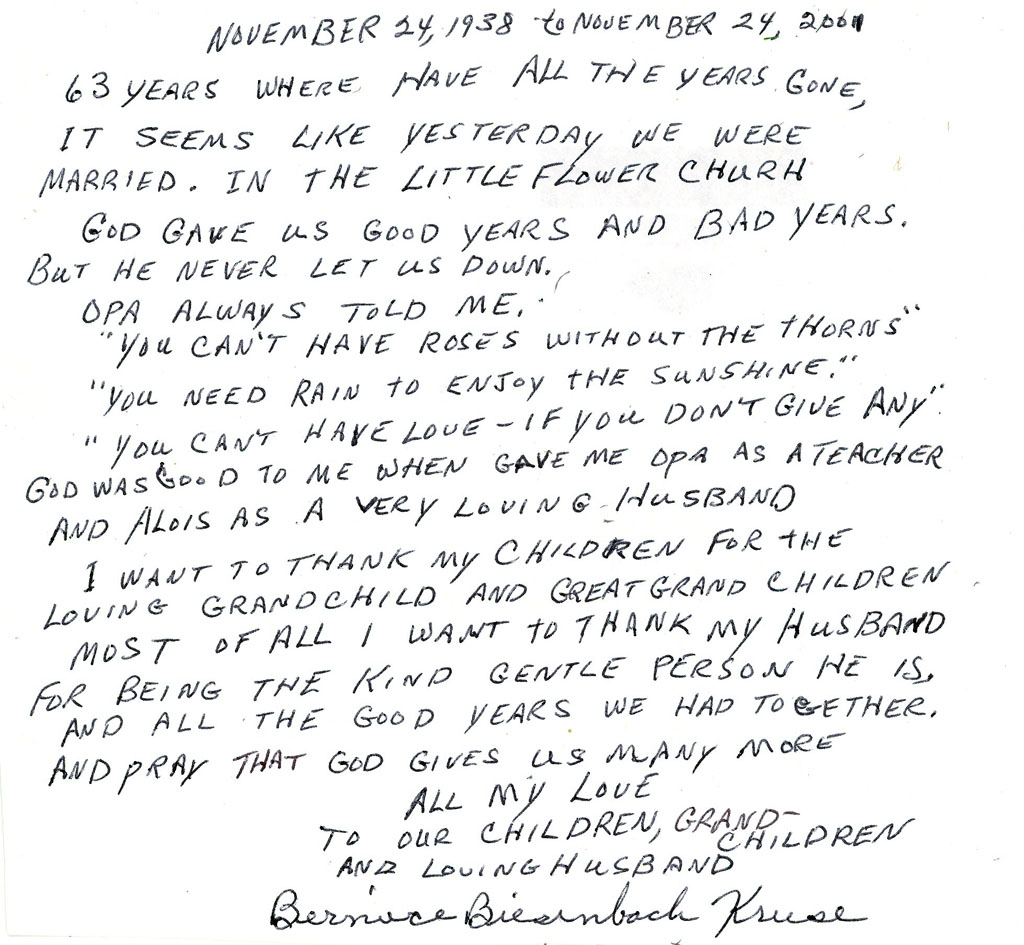 NOVEMBER 24, 1938 to NOVEMBER 24, 2001
63 YEARS WHERE HAVE ALL THE YEARS GONE,
IT SEEMS LIKE YESTERDAY WE WERE
MARRIED. IN THE LITTLE FLOWER CHURH
GOD GAVE US GOOD YEARS AND BAD YEARS.
BUT HE NEVER LET US DOWN.
OPA ALWAYS TOLD ME.
"YOU CAN'T HAVE ROSES WITHOUT THE THORNS"
"YOU NEED RAIN TO ENJOY THE SUNSHINE."
"YOU CAN'T HAVE LOVE - IF YOU DON'T GIVE ANY".
GOD WAS GOOD TO ME WHEN GAVE ME OPA AS A TEACHER
AND ALOIS AS A VERY LOVING HUSBAND
I WANT TO THANK MY CHILDREN FOR THE
LOVING GRANDCHILD AND GREAT GRAND CHILDREN
MOST OF ALL I WANT TO THANK MY HUSBAND
FOR BEING THE KIND GENTLE PERSON HE IS.
AND ALL THE GOOD YEARS WE HAD TOGETHER.
AND PRAY THAT GOD GIVES US MANY MORE
ALL MY LOVE
TO OUR CHILDREN, GRAND-
CHILDREN
AND LOVING HUSBAND
Bernice Biesenbach Kruse